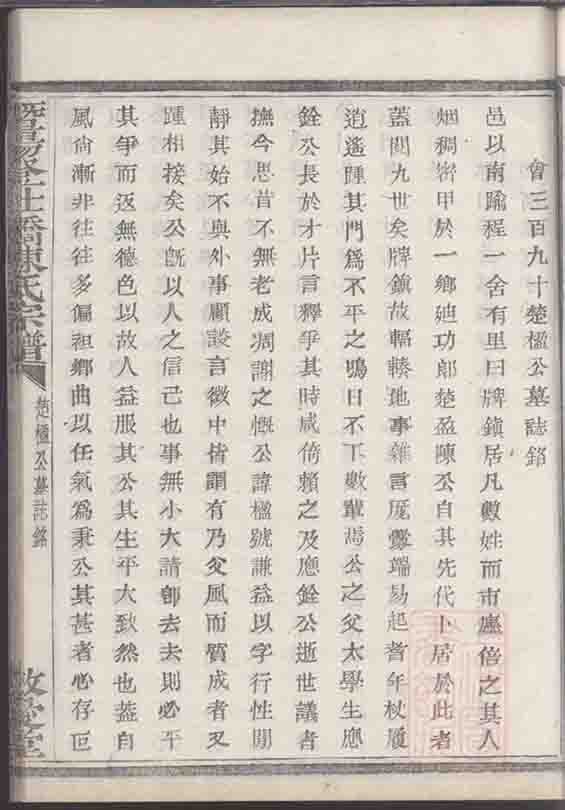 會三百九十楚楹公墓誌銘
邑以南踰程一舍有里曰牌鎮居凡數姓而市廛倍之其人
烟稠密甲於一鄉廸功郎楚盈陳公自其先代卜居於此者
蓋閱九世矣牌鎮故輻輳地事雜言厖釁端易起耆年杖履
逍遙踵其門爲不平之鳴日不下數輩焉公之父太學生應
銓公長於才片言釋爭其時咸倚賴之及應銓公逝世議者
撫今思昔不無老成凋謝之慨公諱楹號謙益以字行性閒
靜其始不與外事顧談言微中皆謂有乃父風而質成者又
踵相接矣公旣以人之信己也事無小大請卽去去則必平
其爭而返無德色以故人益服其公其生平大致然也蓋自
風尙漸非往往多偏袒鄉曲以任氣爲秉公其甚者必存叵
橋陳氏宗譜
楚楹公墓誌銘